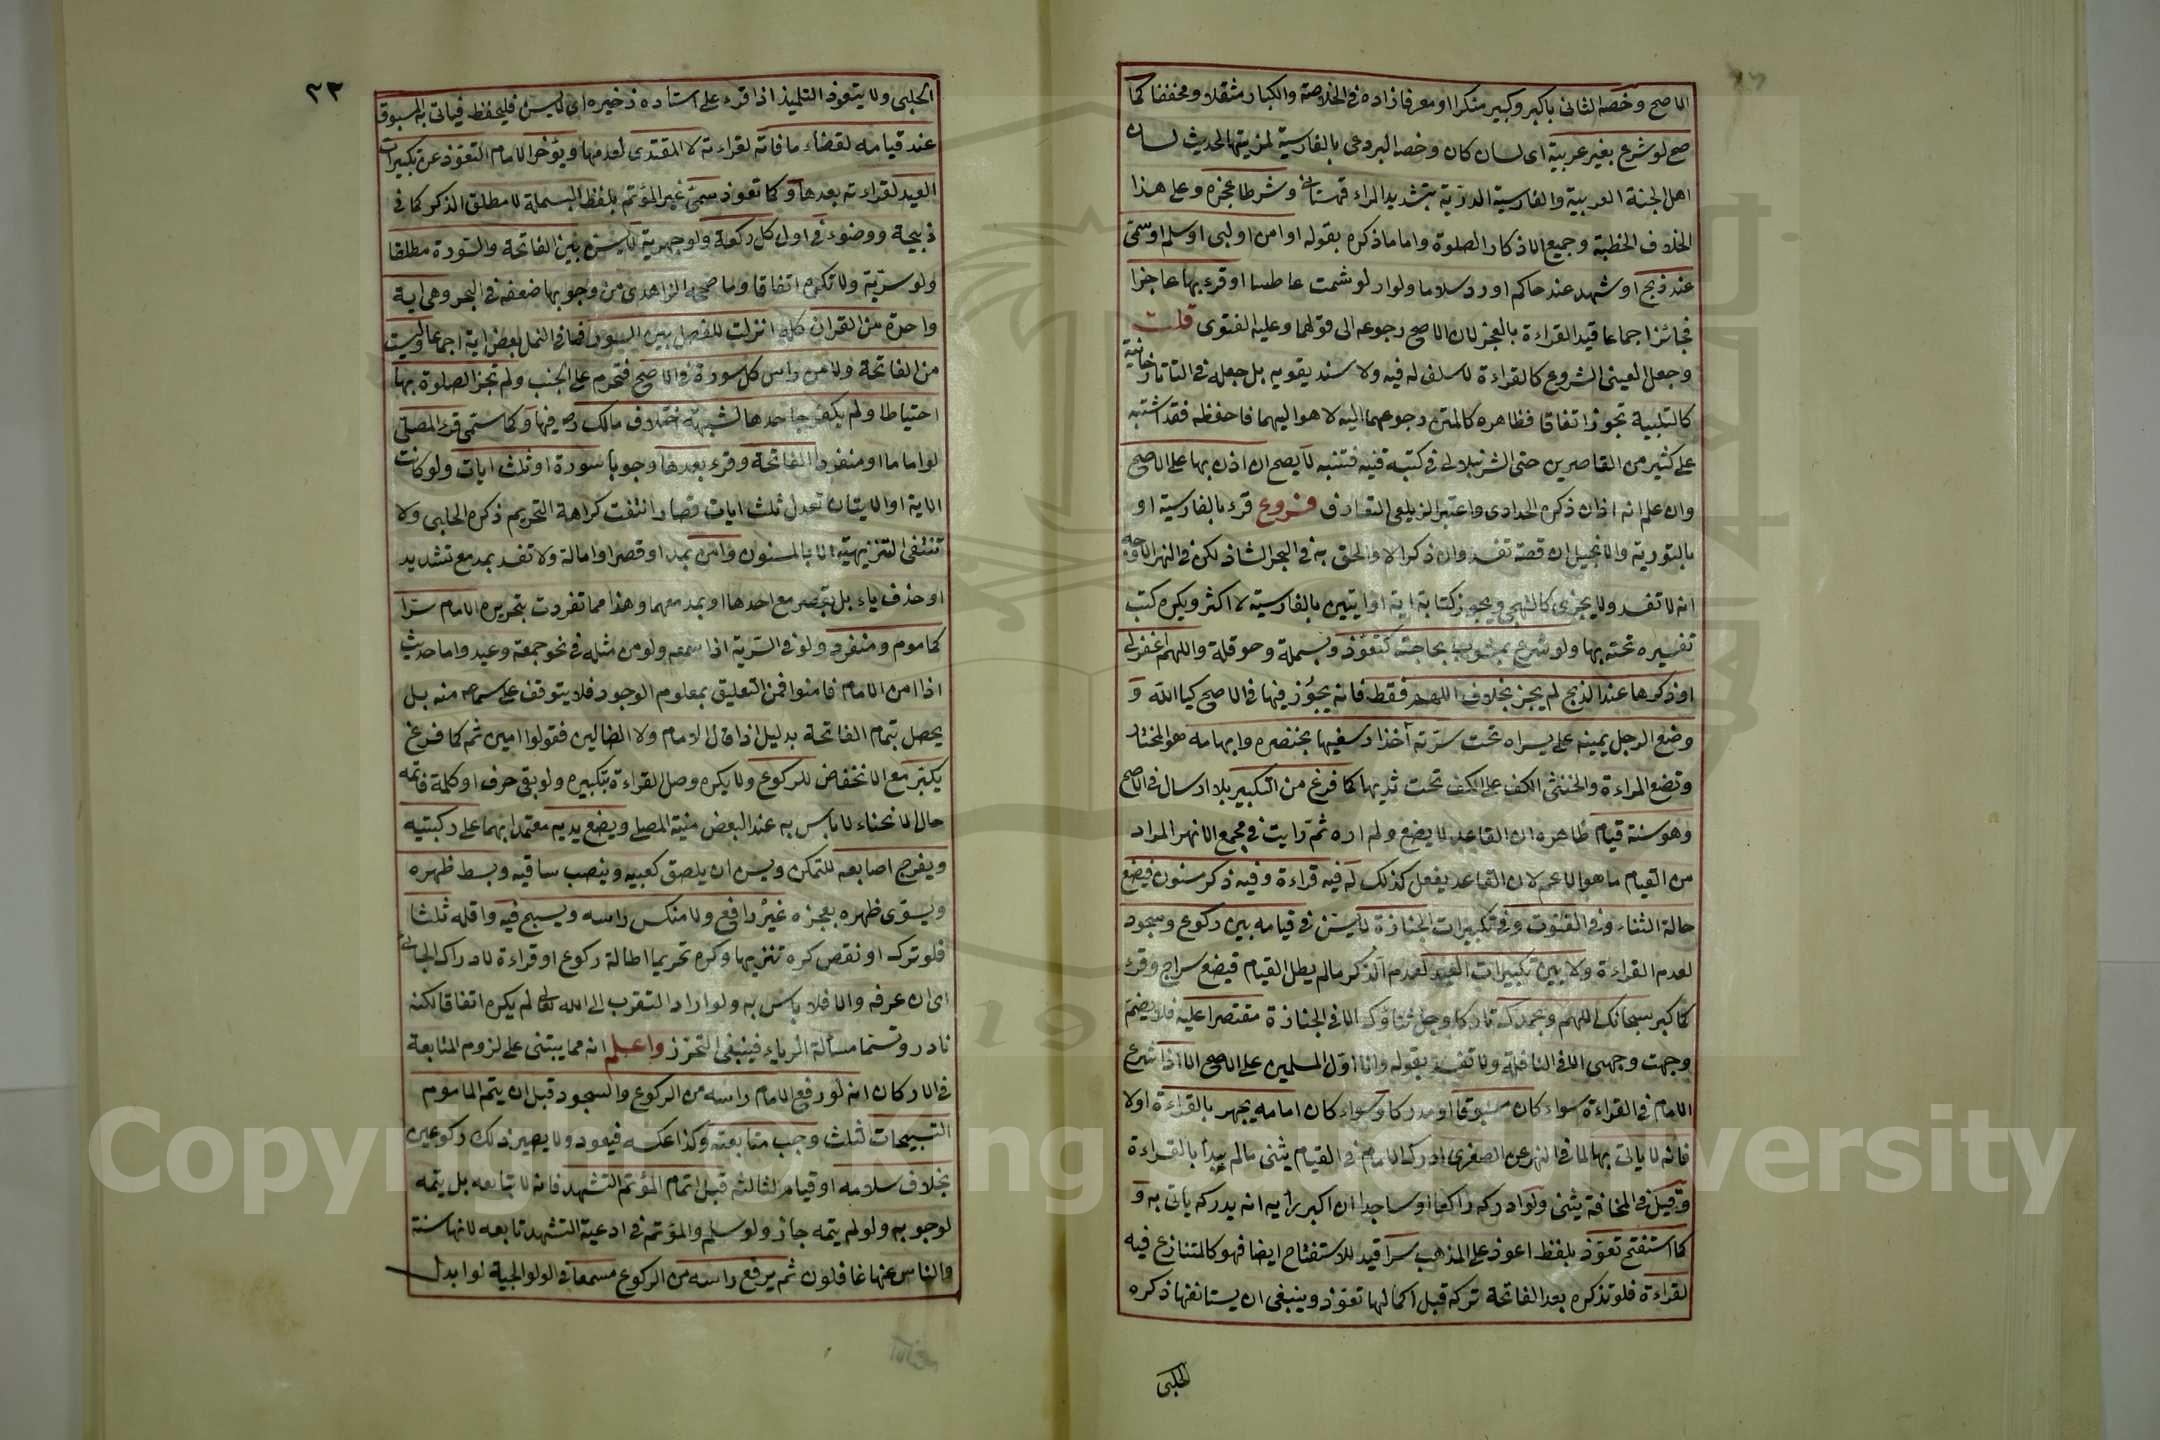 الاصح وخصه الثانى باكبر وكبير منكرا او معرفا زاده فى الخلاصة والكبار مثقلا ومخففا كما
صح لو شرع بغير عربية اى لسان كان وخصه البردعى بالفارسية لمزيتها لحديث لسان
اهل الجنة العربية والفارسية الدرّية بتشديد الراء قهستانى وشرطا عجزه وعلى هذا
الخلاف الخطبة وجميع اذكار الصلوة واما ما ذكره بقوله او امن او لبى او سلم او سمّى
عند ذبح او شهد عند حاكم او رد سلاما ولو ار لو شمت عاطسا او قرء بها عاجزا
فجائز اجماعا قيد القراءة بالعجز لان الاصح رجوعه الى قولهما وعليه الفتوى قلت
وجعل العينى الشروع كالقراءة لا سلف له فيه ولا سند يقويه بل جعله فى التاتارخانية
كالتلبية تجوز اتفاقا فظاهره كالمتن رجوعهما اليه لا هو اليهما فاحفظه فقد اشتبه
على كثير من القاصرين حتى الشرنبلالى فى كتبه فتنبه لا يصح ان اذن بها على الاصح
وان علم انه اذان ذكره الحدادى واعتبر الزيلعى التعارف فروع قرء بالفارسية او
بالتورية والانجيل ان قصة تفسد وان ذكرا لا والحق به فى البحر الشاذ لكن فى النهر الاوجه
انه لا تفسد ولا يجزى كالتهجى ويجوز كتابة اية او ايتين بالفارسية لا اكثر ويكره كتب
تفسيره تحته بها ولو شرع بمشوب بحاجته كتعوّذ وبسملة وحوقلة واللهم اغفر لى
او ذكرها عند الذبح لم يجز بخلاف اللهم فقط فانه يجوز فيها فى الاصح كيا الله و
وضع الرجل يمينه على يساره تحت سرّته آخذا رسغيها بخنصره وابهامه هو المختار
وتضع المراءة والخنثى الكف على الكف تحت ثديها كما فرغ من التكبير بلا ارسال فى الاصح
وهو سنة قيام ظاهره ان القاعد لا يضع ولم اره ثم رايت فى مجمع الانهر المراد
من القيام ما هو الاعم لان القاعد يفعل كذلك له فيه قراءة وفيه ذكر مسنون فيضع
حالة الثناء وفى القنوت وفى تكبيرات الجنازة لا يسن فى قيامه بين ركوع وسجود
لعدم القراءة ولا بين تكبيرات العيد لعدم الذكر مالم يطل القيام فيضع سراج وقرء
كما كبر سبحانك اللهم وبحمدك تاركا وجل ثناؤك الا فى الجنازة مقتصرا عليه فلا يضم
وجهت وجهى الا فى النافلة ولا تفسد بقوله وانا اوّل المسلمين على الاصح الا اذا شرع
الامام فى القراءة سواء كان مسبوقا او مدركا وسواء كان امامه يجهر بالقراءة اولا
فانه لا ياتى بها لما فى النهر عن الصغرى ادرك الامام فى القيام يثنى مالم يبدأ بالقراءة
وقيل فى المخافتة يثنى ولو ادركه راكعا او ساجدا ان اكبر رايه انه يدركه ياتى به و
كما استفتح تعوّذ بلفظ اعوذ على المذهب سرا قيد للاستفتاح ايضا فهو كالمتنازع فيه
لقراءة فلو تذكره بعد الفاتحة تركه قبل اكمالها تعوّذ وينبغى ان يستانفها ذكره
الحلبى
٣٣
الحلبى ولا يتعوذ التلميذ اذا قرء على استاده ذخيره اى لا يسن فليحفظ فياتى به المسبوق
عند قيامه لقضاء ما فاته لقراءته لا المقتدى لعدمها ويؤخر الامام التعوّذ عن تكبيرات
العيد لقراءته بعدها وكما تعوذ سمّى غير المؤتم بلفظ البسملة لا مطلق الذكر كما فى
ذبيحة ووضوء فى اول كل ركعة ولو جهرية لا يسن بين الفاتحة والسورة مطلقا
ولو سريّة ولا تكره اتفاقا وما صححه الزاهدى من وجوبها ضعفه فى البحر وهى اية
واحدة من القران كله انزلت للفصل بين السور فما فى النمل بعض اية اجماعا وليست
من الفاتحة ولا من راس كل سورة فى الاصح فتحرم على الجنب ولم تجز الصلوة بها
احتياطا ولم يكفر جاحدها لشبهة اختلاف مالك فيها وكما سمّى قرء المصلى
لو اماما او منفردا الفاتحة وقرء بعدها وجوبا سورة او ثلث ايات ولو كانت
الاية او الايتان تعدل ثلث ايات قصار انتفت كراهة التحريم ذكره الحلبى ولا
تنتفى التنزيهيّة الا بالمسنون وأمّن بمد او قصر او امالة ولا تفسد بمد مع تشديد
او حذف ياء بل بقصر مع احدها او بمد معهما وهذا مما تفردت بتحريره الامام سرا
كماموم ومنفرد ولو فى السرّية اذا سمعه ولو من مثله فى نحو جمعة وعيد واما حديث
اذا امن الامام فامنوا فمن التعليق بمعلوم الوجود فلا يتوقف على سماعه منه بل
يحصل بتمام الفاتحة بدليل اذا قال الامام ولا الضالين فقولوا امين ثم كما فرغ
يكبّر مع الانخفاض للركوع ولا يكره وصل القراءة بتكبيره ولو بقى حرف او كلمة فاتمه
حال الانحناء لا باس به عند البعض منية المصلى ويضع يديه معتمدا بهما على ركبتيه
ويفرج اصابعه للتمكن ويسن ان يلصق كعبيه وينصب ساقيه وبسط ظهره
ويسوّى ظهره بعجزه غير رافع ولا منكس راسه ويسبح فيه واقله ثلثا
فلو تركه او نقص كره تنزيها وكره تحريما اطالة ركوع او قراءة لادراك الجائى
اى ان عرفه والا فلا باس به ولو اراد التقرب الى الله تعالى لم يكره اتفاقا لكنه
نادر وتسمّا مسألة الرياء فينبغى التحرز واعلم انه مما يبتنى على لزوم المتابعة
فى الاركان انه لو رفع الامام راسه من الركوع والسجود قبل ان يتم الماموم
التسبيحات الثلث وجب متابعته وكذا عكسه فيعود ولا يصير ذلك ركوعين
بخلاف سلامه او قيامه لثالثة قبل اتمام المؤتم التشهد فانه لا يتابعه بل يتمه
لوجوبه ولو لم يتمه جاز ولو سلم والمؤتم فى ادعية التشهد تابعه لانها سنة
والناس عنها غافلون ثم يرفع راسه من الركوع مسمعا فى الولوالجية لو ابدل
Copyright © King Saud University